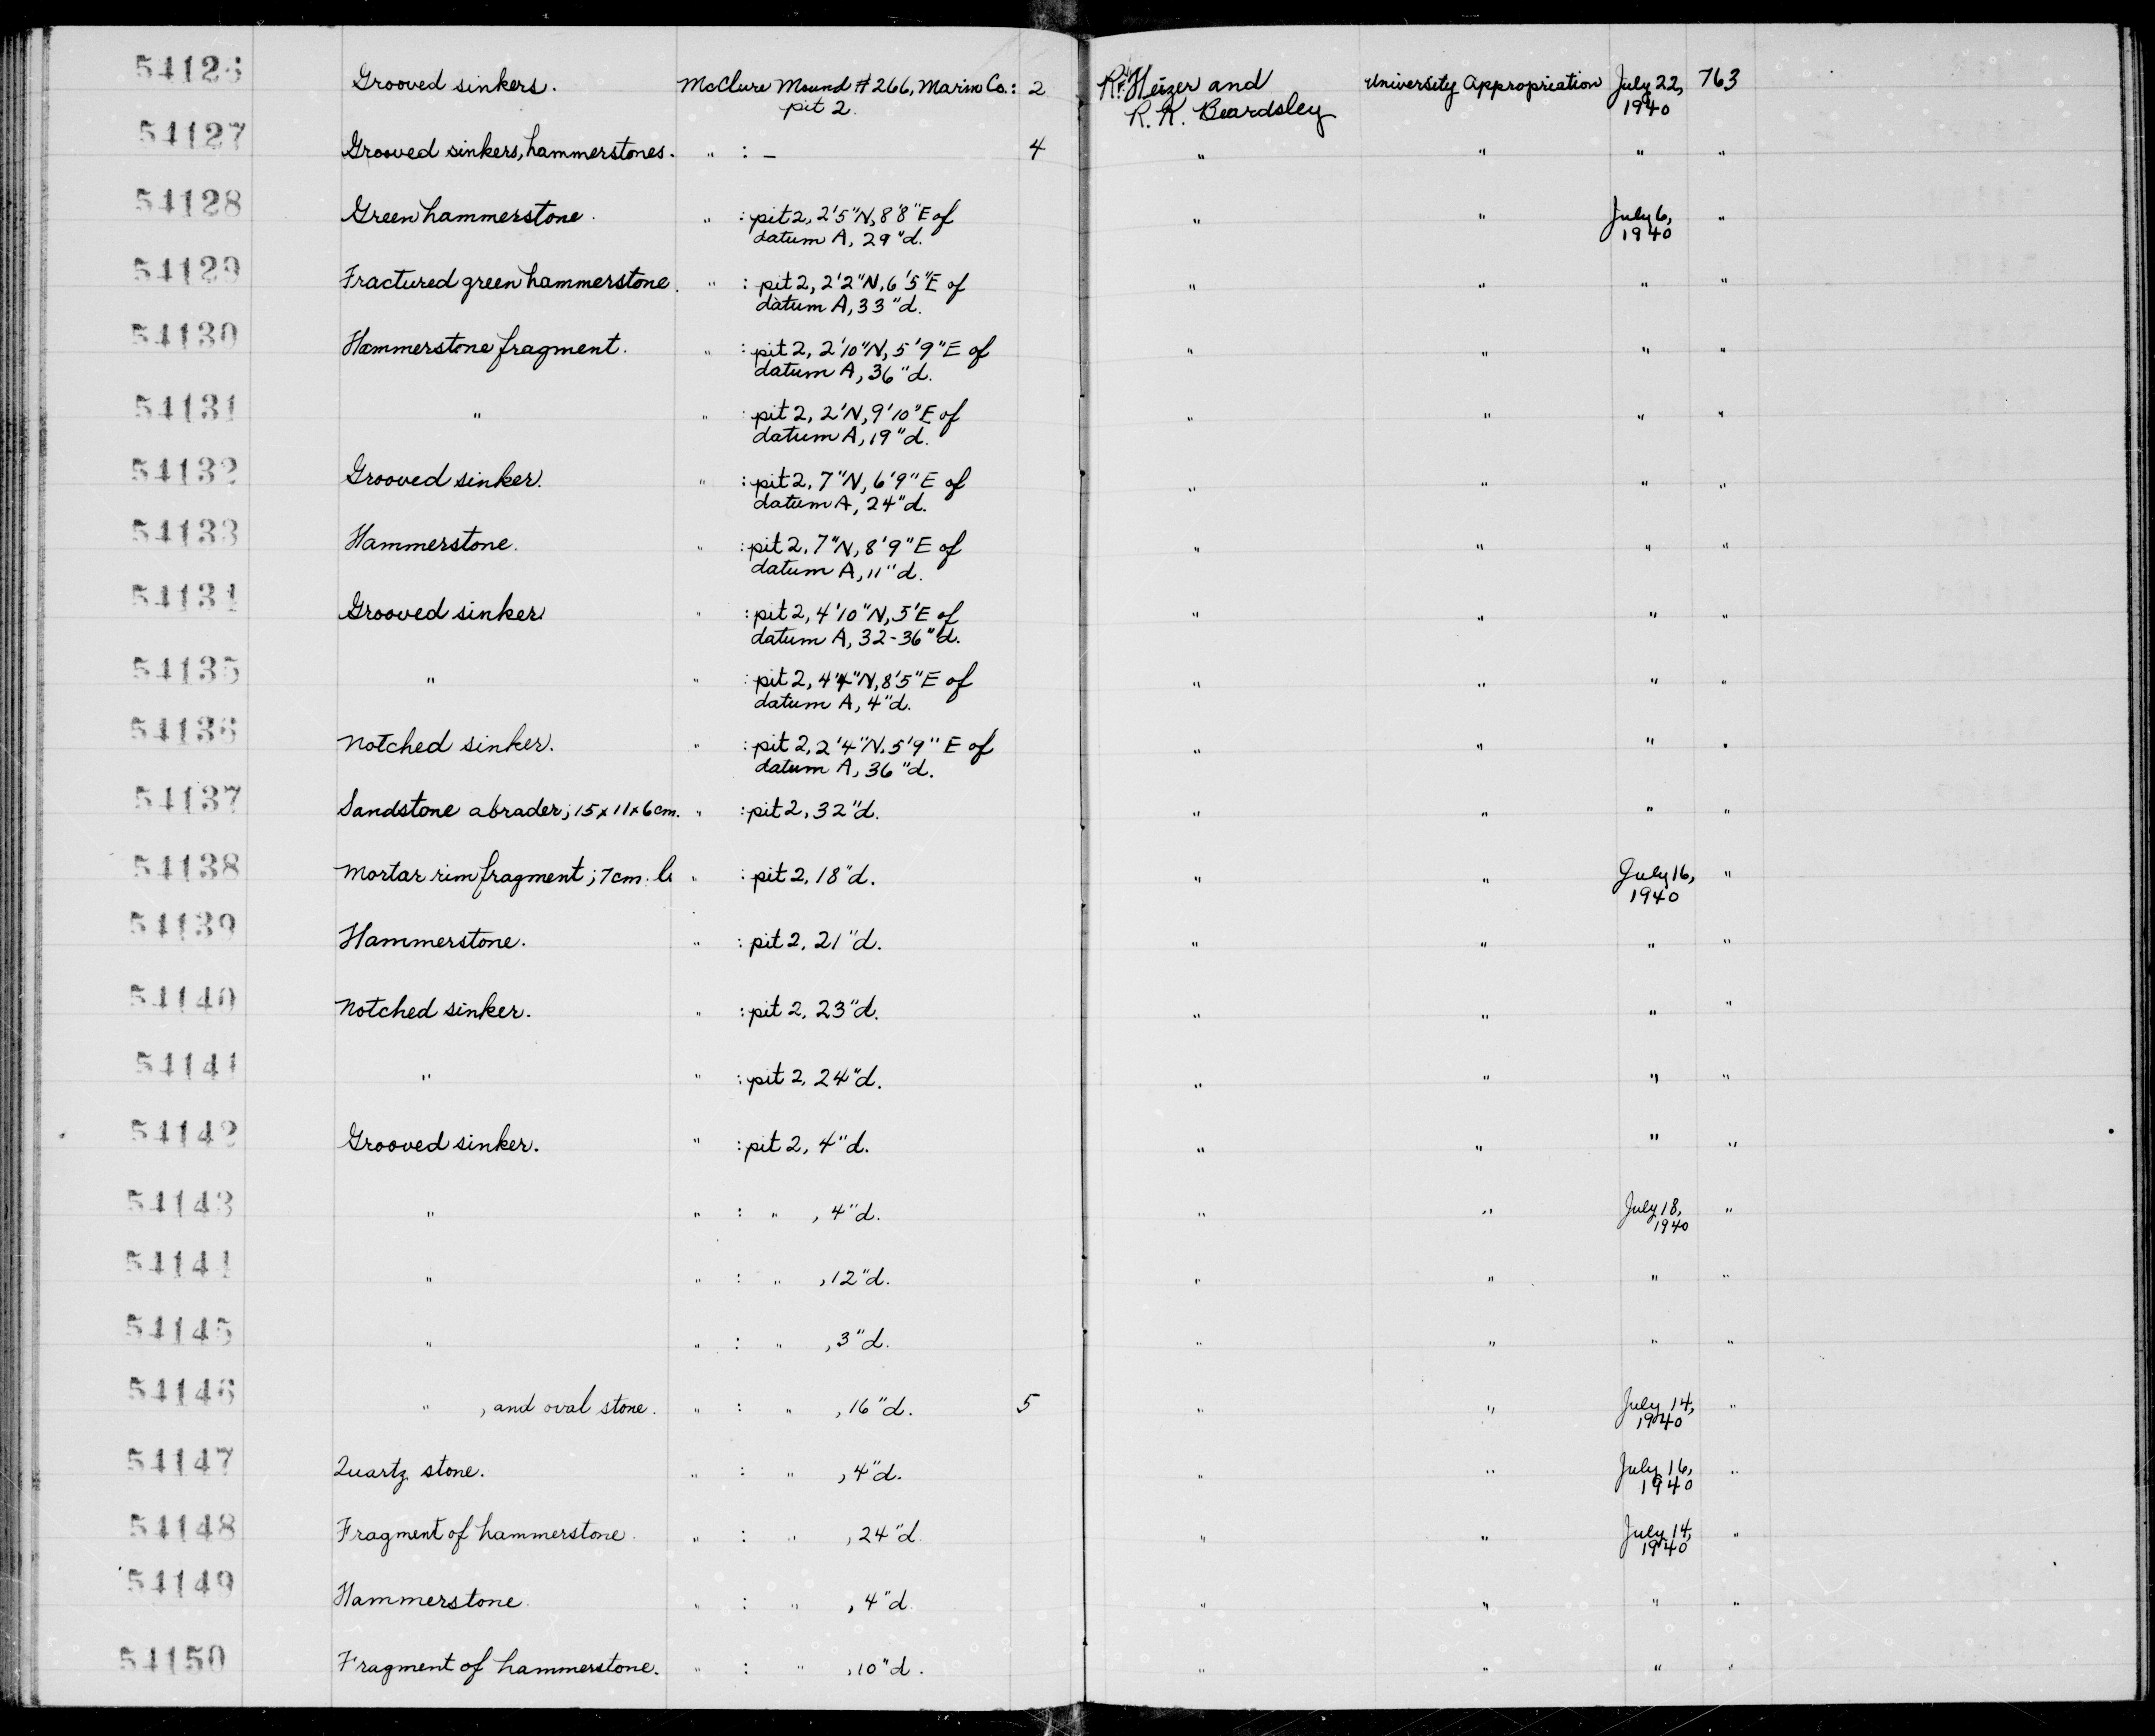 54126 Grooved sinkers. McClure Mound #266, Marin Co.: 2 R.F. Heizer and University Appropriation July 22, 763
pit 2. R. K. Beardsley 1940
54127 Grooved sinkers, hammerstones. " : – 4 " " " "
54128 Green hammerstone. " : pit 2, 2'5"N, 8'8"E of " " July 6, "
datum A, 29"d. 1940
54129 Fractured green hammerstone. " : pit 2, 2'2"N, 6'5"E of " " " "
datum A, 33"d.
54130 Hammerstone fragment. " : pit 2, 2'10"N, 5'9"E of " " " "
datum A, 36"d.
54131 " " : pit 2, 2'N, 9'10"E of " " " "
datum A, 19"d.
54132 Grooved sinker. " : pit 2, 7"N, 6'9"E of " " " "
datum A, 24"d.
54133 Hammerstone. " : pit 2, 7"N, 8'9"E of " " " "
datum A, 11"d.
54134 Grooved sinker " : pit 2, 4'10"N, 5'E of " " " "
datum A, 32-36"d.
54135 " " : pit 2, 4'4"N, 8'5"E of " " " "
datum A, 4"d.
54136 Notched sinker. " : pit 2, 2'4"N, 5'9"E of " " " "
datum A, 36"d.
54137 Sandstone abrader; 15 x 11 x 6 cm. " : pit 2, 32"d. " " " "
54138 Mortar rim fragment; 7 cm. l. " : pit 2, 18"d. " " July 16, "
1940
54139 Hammerstone. " : pit 2, 21"d. " " " "
54140 Notched sinker. " : pit 2, 23"d. " " " "
54141 " " : pit 2, 24"d. " " " "
54142 Grooved sinker. " : pit 2, 4"d. " " " "
54143 " " : " , 4"d. " " July 18, "
1940
54144 " " : " , 12"d. " " " "
54145 " " : " , 3"d. " " " "
54146 " , and oval stone. " : " , 16"d. 5 " " July 14, "
1940
54147 Quartz stone. " : " , 4"d. " " July 16, "
1940
54148 Fragment of hammerstone. " : " , 24"d. " " July 14, "
1940
54149 Hammerstone. " : " , 4"d. " " " "
54150 Fragment of hammerstone. " : " , 10"d. " " " "